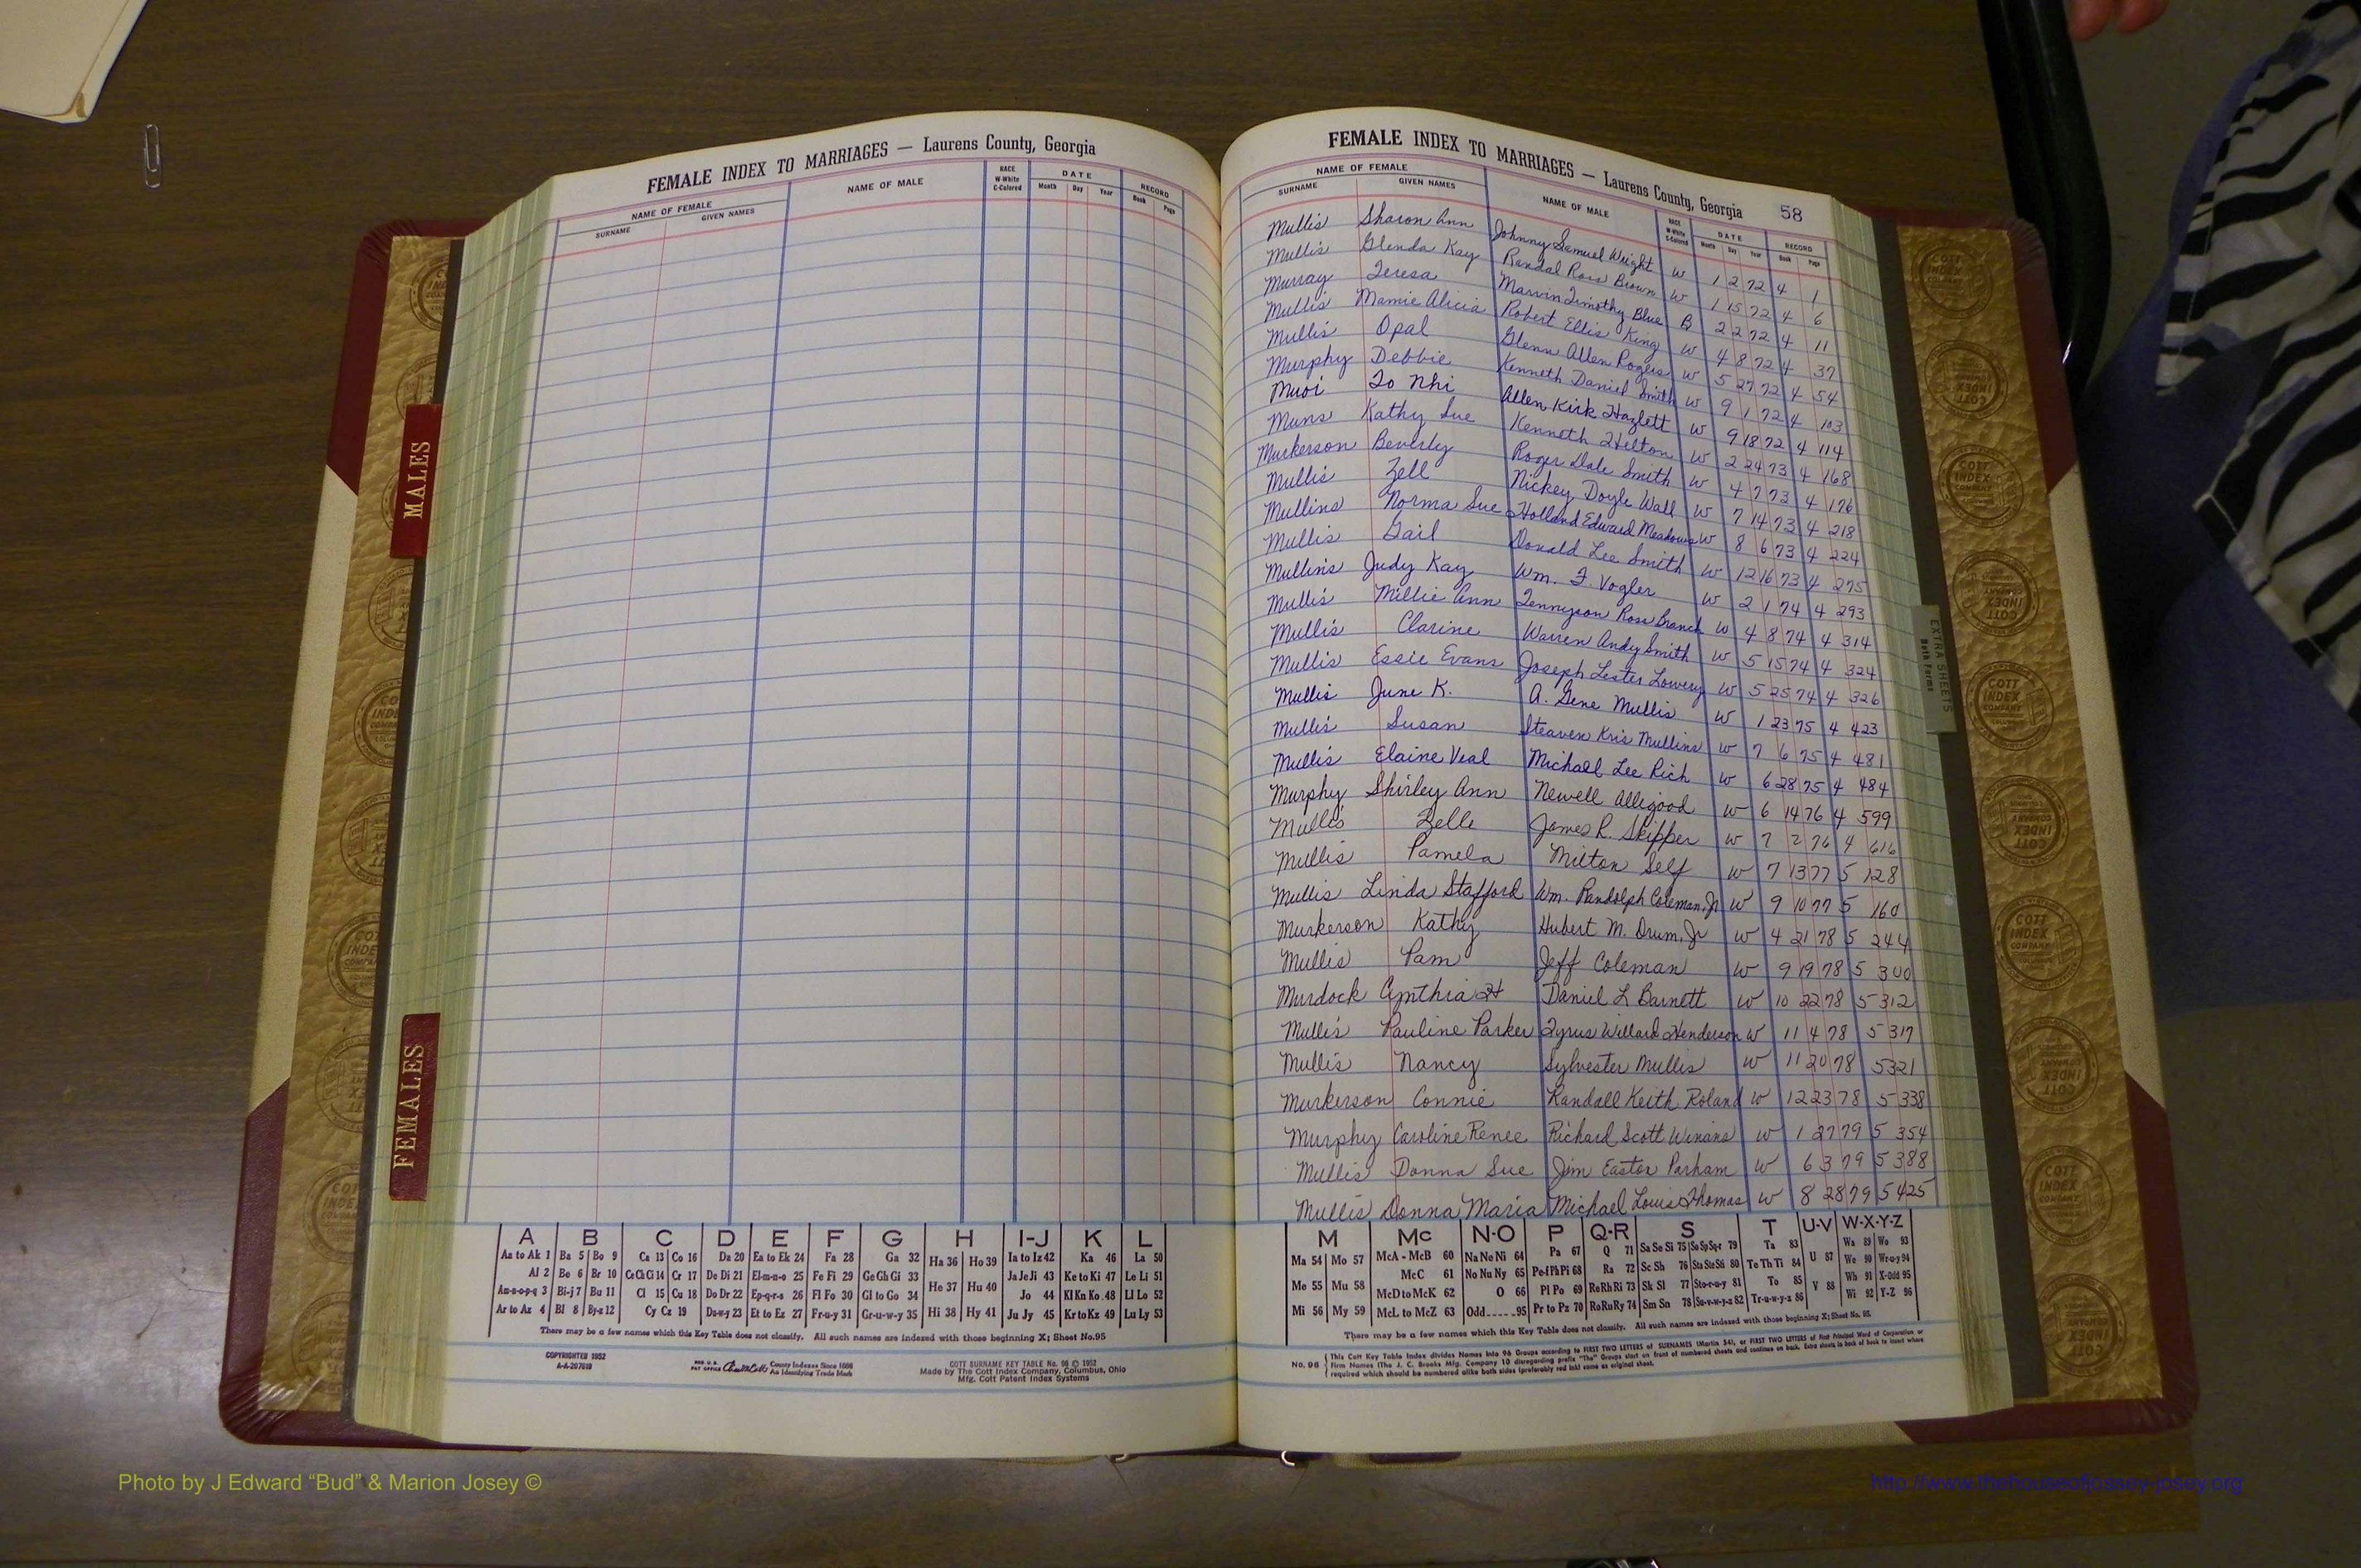 FEMALE INDEX TO MARRIAGES — Laurens County, Georgia
NAME OF FEMALE
SURNAME GIVEN NAMES
NAME OF MALE
RACE W-White C-Colored
DATE
Month Day Year
RECORD
Book Page
MALES
FEMALES
A B C D E F G H I-J K L
Aa to Ak 1 Ba 5 Bo 9 Ca 13 Co 16 Da 20 Ea to Ek 24 Fa 28 Ga 32 Ha 36 Ho 39 Ia to Iz 42 Ka 46 La 50
Al 2 Be 6 Br 10 Ce Ch Ci 14 Cr 17 De Di 21 El-m-n-o 25 Fe Fi 29 Ge Gh Gi 33 He 37 Hu 40 Ja Je Ji 43 Ke to Ki 47 Le Li 51
Am-n-o-p-q 3 Bi-j 7 Bu 11 Cl 15 Cu 18 Do Dr 22 Ep-q-r-s 26 Fl Fo 30 Gl to Go 34 Jo 44 Kl Kn Ko 48 Ll Lo 52
Ar to Az 4 Bl 8 By-z 12 Cy Cz 19 Du-w-y 23 Et to Ez 27 Fr-u-y 31 Gr-u-w-y 35 Hi 38 Hy 41 Ju Jy 45 Kr to Kz 49 Lu Ly 53
There may be a few names which this Key Table does not classify. All such names are indexed with those beginning X; Sheet No.95
COPYRIGHTED 1952
A-A-207610
REG. U.S. PAT OFFICE County Indexes Since 1888
An Identifying Trade Mark
COTT SURNAME KEY TABLE No. 96 © 1952
Made by The Cott Index Company, Columbus, Ohio
Mfg. Cott Patent Index Systems
FEMALE INDEX TO MARRIAGES — Laurens County, Georgia 58
NAME OF FEMALE
SURNAME GIVEN NAMES
NAME OF MALE
RACE W-White C-Colored
DATE
Month Day Year
RECORD
Book Page
Mullis Sharon Ann Johnny Samuel Wright W 1 2 72 4 1
Mullis Glenda Kay Randal Ross Brown W 1 15 72 4 6
Murray Teresa Marvin Timothy Blue B 2 2 72 4 11
Mullis Mamie Alicia Robert Ellis King W 4 8 72 4 37
Mullis Opal Glenn Allen Rogers W 5 27 72 4 54
Murphy Debbie Kenneth Daniel Smith W 9 1 72 4 103
Muoi To Nhi Allen Kirk Hazlett W 9 18 72 4 114
Muns Kathy Sue Kenneth Hilton W 2 24 73 4 168
Murkerson Beverly Roger Dale Smith W 4 7 73 4 196
Mullis Zell Nickey Doyle Wall W 7 14 73 4 218
Mullins Norma Sue Holland Edward Meadows W 8 6 73 4 224
Mullis Gail Donald Lee Smith W 12 16 73 4 275
Mullins Judy Kay Wm. F. Vogler W 2 1 74 4 293
Mullis Millie Ann Tennyson Ross Branch W 4 8 74 4 314
Mullis Clarine Warren Andy Smith W 5 15 74 4 324
Mullis Essie Evans Joseph Lester Lowery W 5 25 74 4 326
Mullis June K. A. Gene Mullis W 1 23 75 4 423
Mullis Susan Steaven Kris Mullins W 7 6 75 4 481
Mullis Elaine Veal Michael Lee Rich W 6 28 75 4 484
Murphy Shirley Ann Newell Alligood W 6 14 76 4 599
Mullis Zelle James R. Skipper W 7 2 76 4 616
Mullis Pamela Milton Self W 7 13 77 5 128
Mullis Linda Stafford Wm. Randolph Coleman, Jr W 9 10 77 5 160
Murkerson Kathy Hubert M. Drum, Jr W 4 21 78 5 244
Mullis Pam Jeff Coleman W 9 19 78 5 300
Murdock Cynthia H Daniel L Barnett W 10 22 78 5 312
Mullis Pauline Parker Tyrus Willard Henderson W 11 4 78 5 317
Mullis Nancy Sylvester Mullis W 11 20 78 5 321
Murkerson Connie Randall Keith Roland W 12 23 78 5 338
Murphy Caroline Renee Richard Scott Winans W 1 27 79 5 354
Mullis Donna Sue Jim Easton Parham W 6 3 79 5 388
Mullis Donna Maria Michael Louis Thomas W 8 28 79 5 425
M Mc N-O P Q-R S T U-V W-X-Y-Z
Ma 54 Mo 57 McA - McB 60 Na Ne Ni 64 Pa 67 Q 71 Sa Se Si 75 So Sp Sq-r 79 Ta 83 U 87 Wa 89 Wo 93
Me 55 Mu 58 McC 61 No Nu Ny 65 Pe-f Ph Pi 68 Ra 72 Sc Sh 76 Sta Ste Sti 80 Te Th Ti 84 We 90 Wr-u-y 94
McD to McK 62 O 66 Pl Po 69 Re Rh Ri 73 Sk Sl 77 Sto-r-u-y 81 To 85 V 88 Wh 91 X-Odd 95
Mi 56 My 59 McL to McZ 63 Odd 95 Pr to Pz 70 Ro Ru Ry 74 Sm Sn 78 Su-v-w-y-z 82 Tr-u-w-y-z 86 Wi 92 Y-Z 96
There may be a few names which this Key Table does not classify. All such names are indexed with those beginning X; Sheet No. 95
No. 96 This Cott Key Table Index divides Names into 96 Groups according to FIRST TWO LETTERS of SURNAMES (Martin 54), or FIRST TWO LETTERS of First Principal Word of Corporation or
Firm Names (The J. C. Brooks Mfg. Company 10 disregarding prefix "The") Groups start on front of numbered sheets and continue on back. Extra sheets in back of book to insert where
required which should be numbered alike both sides (preferably red ink) same as original sheet.
EXTRA SHEETS
Both Forms
COTT INDEX COMPANY
Photo by J Edward “Bud” & Marion Josey ©
http://www.thehouseofjossey-josey.org